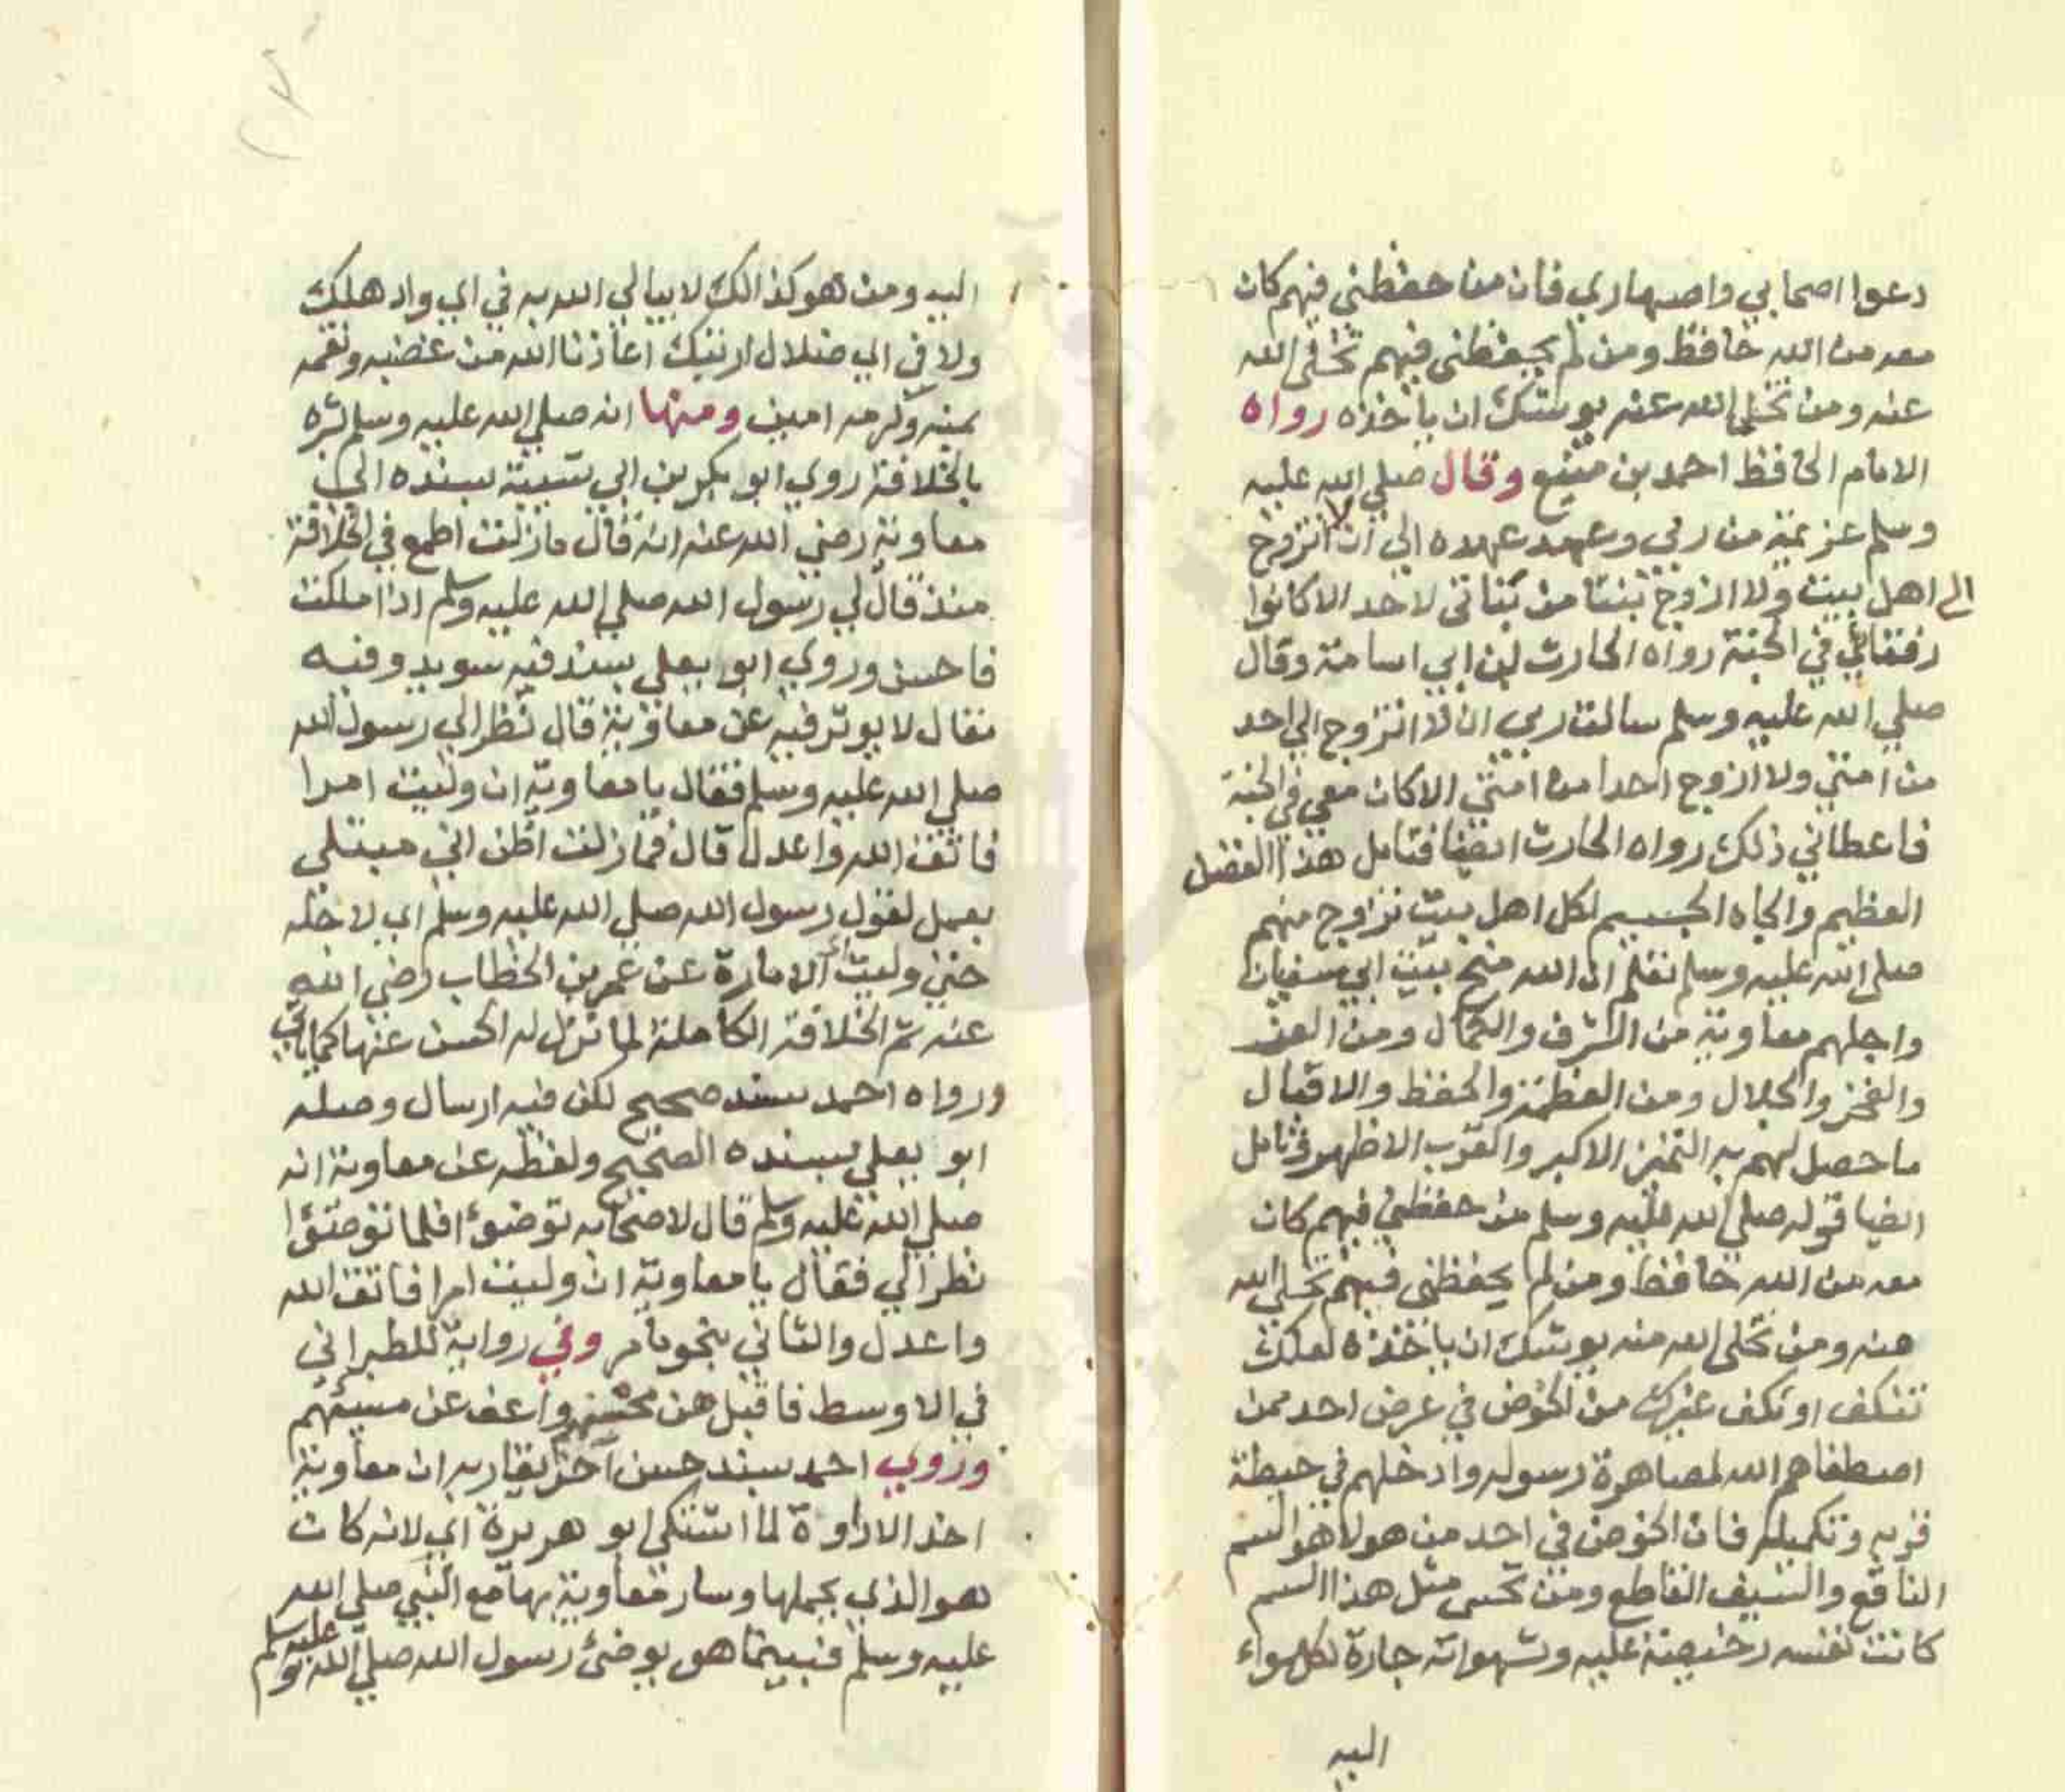 دعوا اصحابي واصهاري فان من حفظني فيهم كان
معه من الله حافظ ومن لم يحفظني فيهم تخلى الله
عنه ومن تخلى الله عنه يوشك ان ياخذه رواه
الامام الحافظ احمد بن منيع وقال صلي الله عليه
وسلم عزيمة من ربي وعهد عهده الي ان لا اتزوج
الى اهل بيت ولا ازوج بنتا من بناتي لاحد الا كانوا
رفقائي في الجنة رواه الحارث ابن ابي اسامة وقال
صلي الله عليه وسلم سالت ربي ان لا اتزوج الي احد
من امتي ولا ازوج احدا من امتي الا كان معي في الجنة
فاعطاني ذلك رواه الحارث ايضا فتامل هذا الفضل
العظيم والجاه الجسيم لكل اهل بيت تزوج منهم
صلي الله عليه وسلم تعلم ان الله منح بيت ابي سفيان
واجلهم معاوية من الشرف والكمال ومن العز
والفخر والجلال ومن العظمة والحفظ والاقبال
ما حصل لهم به التميز الاكبر والقرب الاظهر وتامل
ايضا قوله صلي الله عليه وسلم من حفظني فيهم كان
معه من الله حافظ ومن لم يحفظني فيهم تخلي الله
عنه ومن تخلى الله منه يوشك ان ياخذه لعلك
تنكف او تكف غيرك من الخوض في عرض احد ممن
اصطفاهم الله لمصاهرة رسوله وادخلهم في حيطة
قربه وتكميله فان الخوض في احد من هولا هو السم
الناقع والسيف القاطع ومن تحسى مثل هذا السم
كانت نفسه رخيصة عليه وشهواته جارة لكل سواء
اليه
اليه ومن هو كذالك لا يبالي الله به في اي واد هلك
ولا في اي ضلال ارتبك اعاذنا الله من غضبه ونقمه
بمنه وكرمه امين ومنها انه صلي الله عليه وسلم بشره
بالخلافة روي ابو بكر بن ابي شيبة بسنده الي
معاوية رضي الله عنه انه قال ما زلت اطمع في الخلافة
منذ قال لي رسول الله صلي الله عليه وسلم اذا ملكت
فاحسن وروي ابو يعلي بسند فيه سويد وفيه
مقال لا يوثر فيه عن معاوية قال نظر الي رسول الله
صلي الله عليه وسلم فقال يا معاوية ان وليت امرا
فاتق الله واعدل قال فما زلت اظن اني مبتلي
بعمل لقول رسول الله صلي الله عليه وسلم اي لاجله
حتى وليت الامارة عن عمر بن الخطاب رضي الله
عنه ثم الخلافة الكاملة لما نزل له الحسن عنها كما ياتي
ورواه احمد بسند صحيح لكن فيه ارسال وصله
ابو يعلي بسنده الصحيح ولفظه عن معاوية انه
صلي الله عليه وسلم قال لاصحابه توضوؤا فلما توضؤا
نظر الي فقال يا معاوية ان وليت امرا فاتق الله
واعدل والثاني بنحو ما مر وفي رواية للطبراني
في الاوسط فاقبل من محسنهم واعف عن مسيئهم
وروي احمد بسند حسن آخر يقاربه ان معاوية
اخذ الاداوة لما اشتكي ابو هريرة اي لانه كان
هو الذي يحملها وسار معاوية بها مع النبي صلي الله
عليه وسلم فبينما هو يوضئ رسول الله صلي الله عليه وسلم